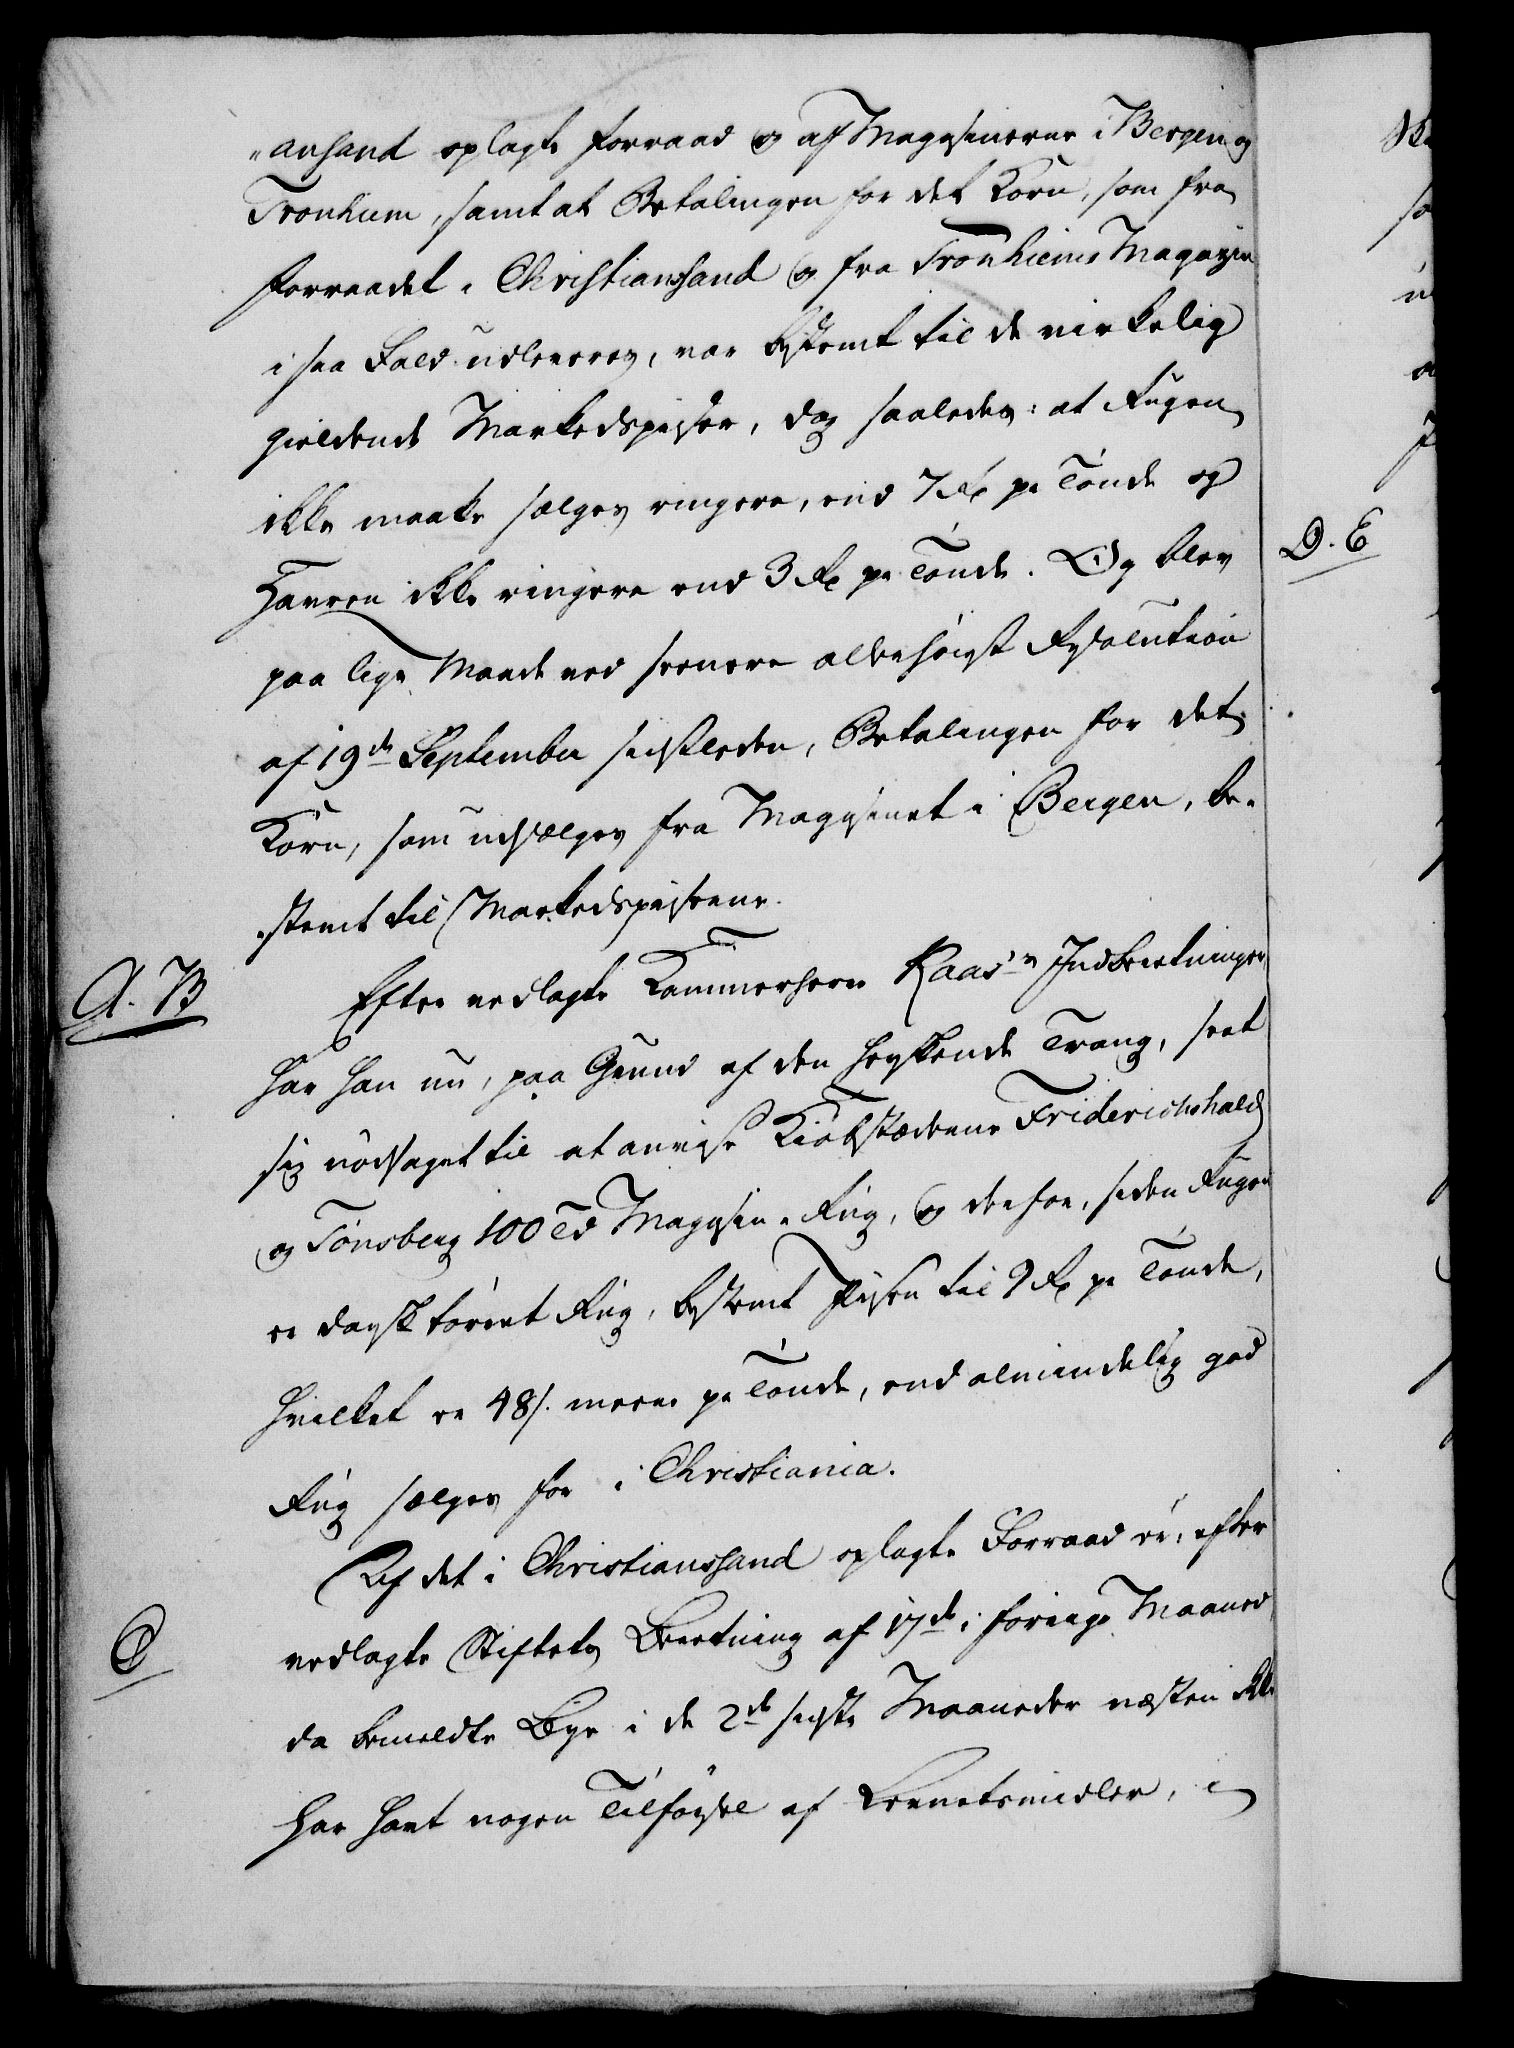 "ansand oplagte Forraad og af Magasinerne i Bergen og
Tronhiem, samt at Betalingen for det Korn, som fra
Forraadet i Christianssand og fra Tronhiems Magazin
i saa Fald udleveres, var bestemt til de virkelig
gieldende Markedspriser, dog saaledes: at Rugen
ikke maatte sælges ringere, end 7 Rd pr Tønde og
Havren ikke ringere end 3 Rd pr Tønde. Og blev
paa lige Maade ved seenere allerhøieste Resolution
af 19de September sidstleden, Betalingen for det
Korn, som udsælges fra Magasinet i Bergen, be-
stemt til Markedspriserne.
A. B
Efter vedlagte Kammerherre Kaas's Indberetninger
har han nu, paa Grund af den herskende Trang, seet
sig nødsaget til at anvise Kiøbstæderne Friderichshald
og Tønsberg 100 Td Magasin-Rug, og derfor, siden Rugen
er dansk tørret Rug, bestemt Prisen til 9 Rd pr Tønde,
hvilket er 48 s. meere pr Tønde, end almindelig god
Rug sælges for i Christiania.
C
Af det i Christianssand oplagte Forraad er, efter
vedlagte Stiftets Beretning af 17de i forrige Maaned,
da bemeldte Bye i de 2de sidste Maaneder næsten ikke
har havt nogen Tilførsel af Levnetsmidler,
D. E